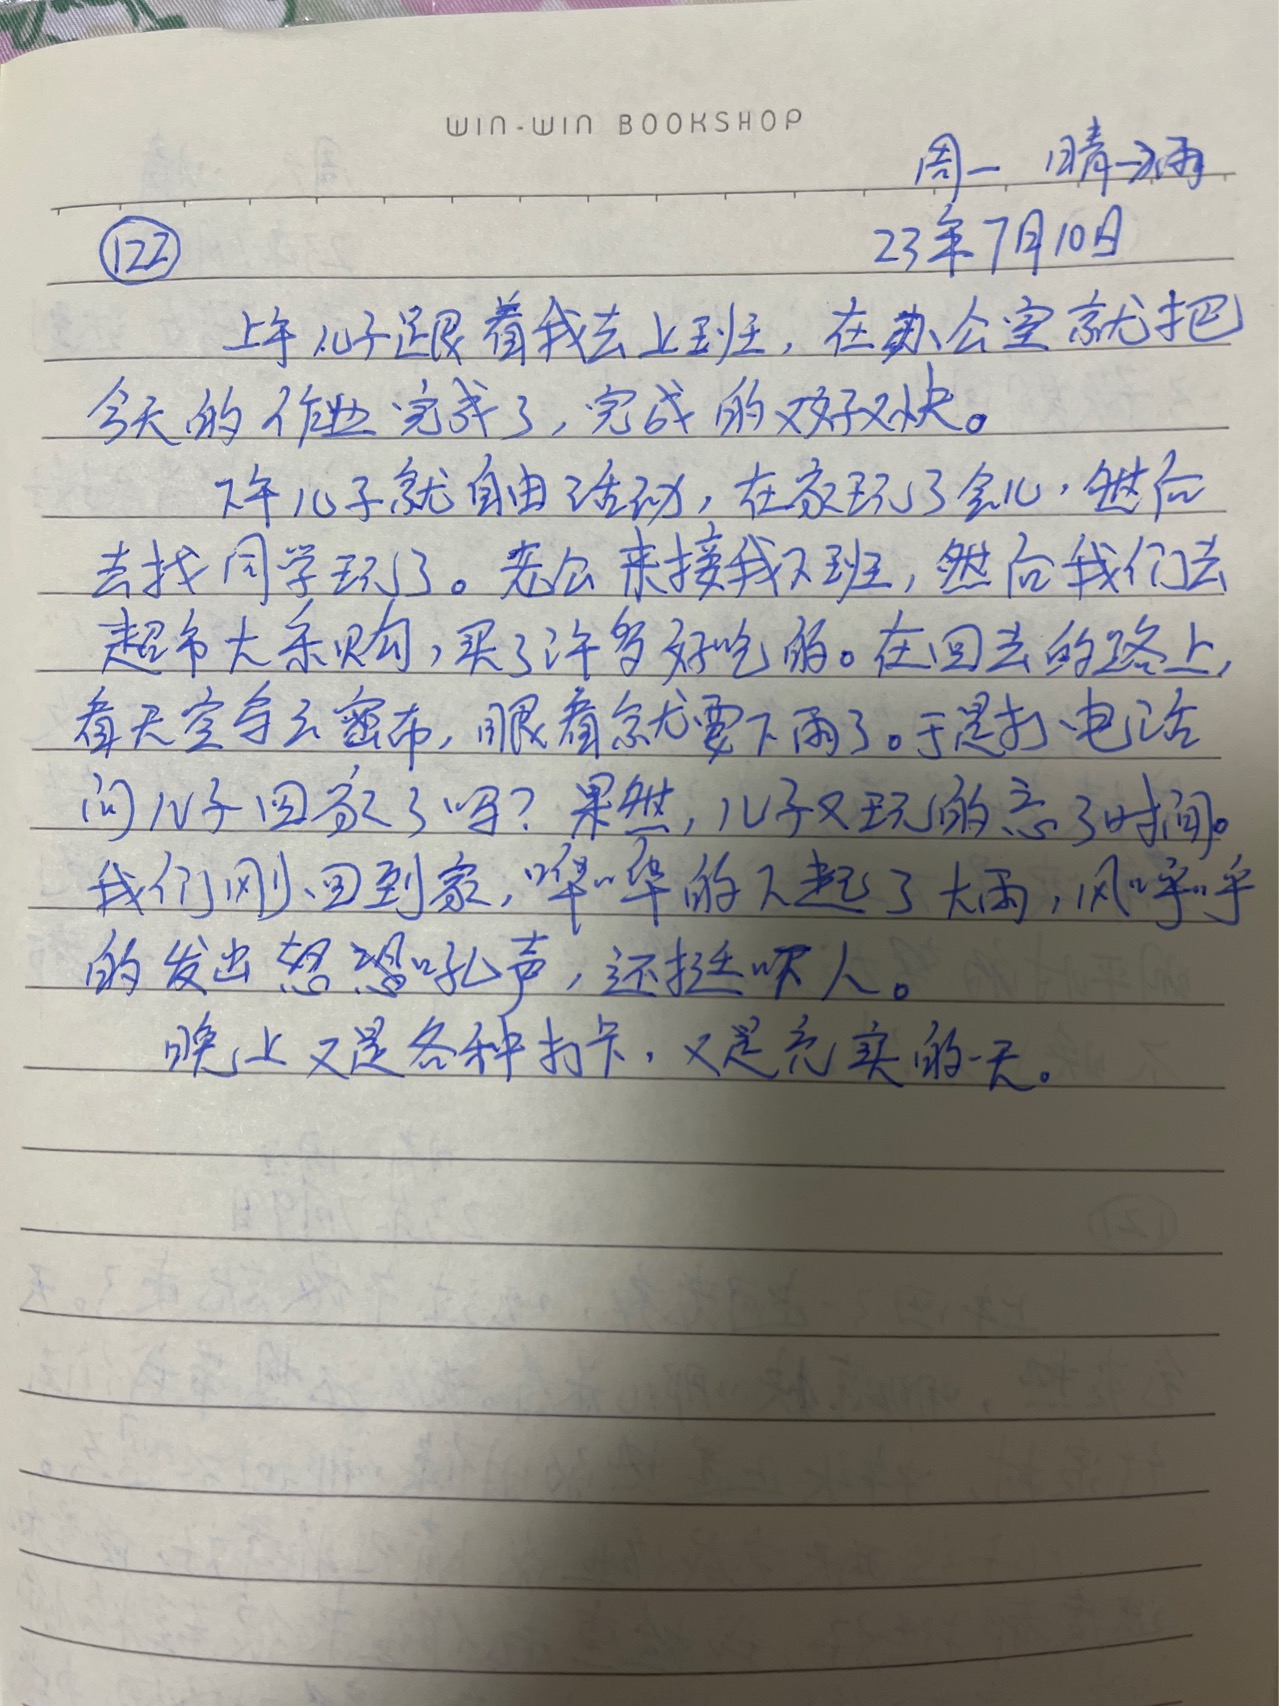 WIN-WIN BOOKSHOP
周一 晴→雨
122
23年7月10日
上午儿子跟着我去上班，在办公室就把
今天的作业完成了，完成的又好又快。
下午儿子就自由活动，在家玩了会儿，然后
去找同学玩了。老公来接我下班，然后我们去
超市大采购，买了许多好吃的。在回去的路上，
看天空乌云密布，眼看就要下雨了。于是打电话
问儿子回家了吗？果然，儿子又玩的忘了时间。
我们刚回到家，哗哗的下起了大雨，风呼呼
的发出怒吼声，还挺吓人。
晚上又是各种打卡，又是充实的一天。